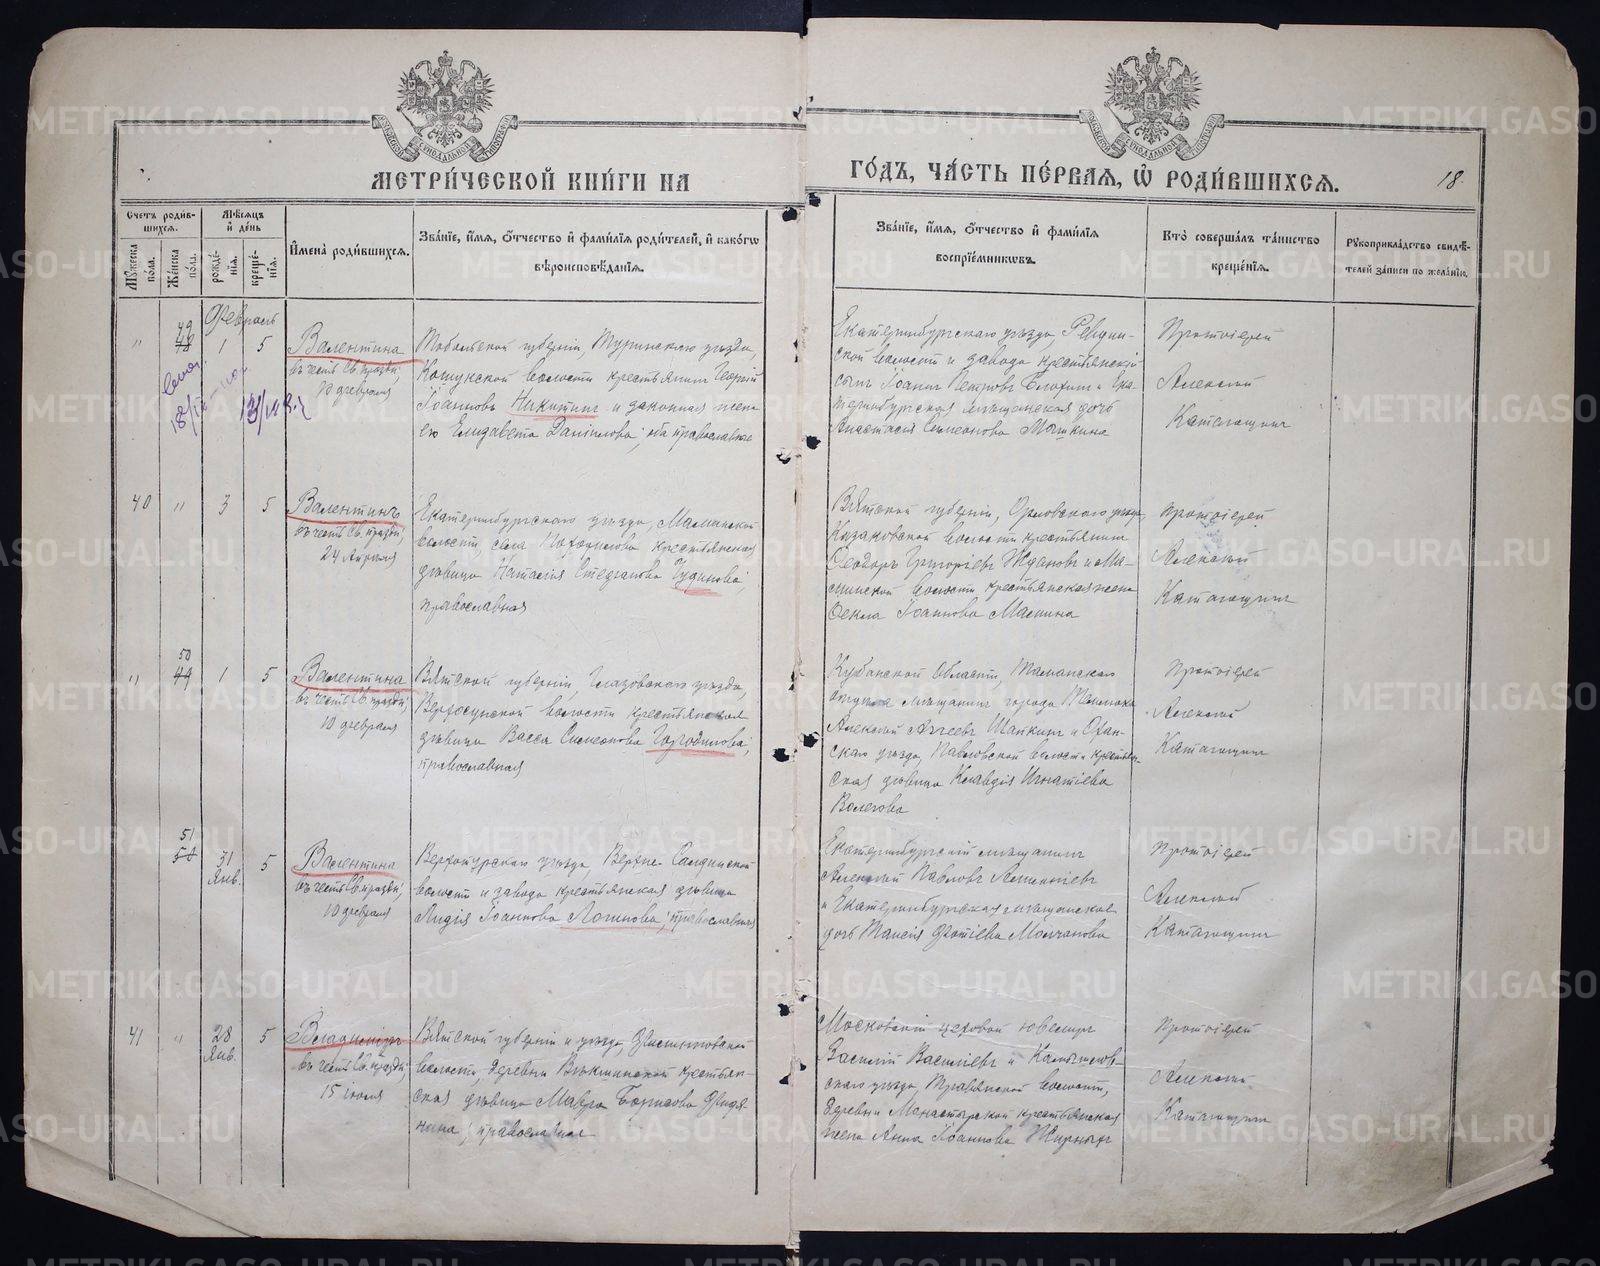 МЕТРИ́ЧЕСКОЙ КНИ́ГИ НА
ГО́ДЪ, ЧА́СТЬ ПЕ́РВАЯ, Ѡ РОДИ́ВШИХСЯ.
18.
Счетъ роди́вшихся.
Мѣ́сяцъ и де́нь
Имена̀ роди́вшихся.
Зва́нїе, и́мя, о́тчество и фами́лїя роди́телей, и како́гω
вѣроисповѣ́данїя.
Зва́нїе, и́мя, о́тчество и фами́лїя
воспрїе́мниковъ.
Кто̀ соверша́лъ та́инство
креще́нїя.
Рукоприкла́дство свидѣ́-
телей за́писи по жела́нїю.
Му́жеска по́ла.
Же́нска по́ла.
рожде́-нїя.
креще́-нїя.
Февраль
"
49
48
1
5
Валентина
въ честь св. праздн.
10 февраля
Тобольской губерніи, Туринскаго уѣзда,
Кошукской волости крестьянинъ Георгій
Іоанновъ Никитинъ и законная жена
его Елизавета Даніилова; оба православные
Екатеринбургскаго уѣзда, Ревдин-
ской волости и завода крестьянскій
сынъ Іоаннъ Петровъ и Ека-
теринбургская мѣщанская дочь
Анастасія Симеонова Машкина
Протоіерей
Алексій
Катагощинъ
40
"
3
5
Валентинъ
въ честь св. праздн.
24 Апрѣля
Екатеринбургскаго уѣзда, Маминской
волости, села крестьянская
дѣвица Наталія Стефанова Чудинова;
православная
Вятской губерніи, Орловскаго уѣзда,
Казаковской волости крестьянинъ
Ѳеодоръ Григоріевъ Ждановъ и Ма-
минской волости крестьянская жена
Ѳекла Іоаннова Мамина
Протоіерей
Алексій
Катагощинъ
"
50
49
1
5
Валентина
въ честь св. праздн.
10 февраля
Вятской губерніи, Глазовскаго уѣзда,
Верхосунской волости крестьянская
дѣвица Васса Симеонова
православная
Кубанской Области, Таманскаго
мѣщанинъ города Темрюка
Алексій Шапкинъ и Охан-
скаго уѣзда, Павловской волости крестьян-
ская дѣвица Клавдія Игнатіева
Волегова
Протоіерей
Алексій
Катагощинъ
51
50
31
Янв.
5
Валентина
въ честь св. праздн.
10 февраля
Верхотурскаго уѣзда, Верхне-Салдинской
волости и завода крестьянская дѣвица
Лидія Іоаннова Логинова; православная
Екатеринбургскій мѣщанинъ
Алексій Павловъ
и Екатеринбургская мѣщанская
дочь Таисія Фотіева Молчанова
Протоіерей
Алексій
Катагощинъ
41
"
28
Янв.
5
Владиміръ
въ честь св. праздн.
15 іюля
Вятской губерніи и уѣзда,
волости, деревни крестьян-
ская дѣвица Мавра Борисова
православная
Московскій цеховой ювелиръ
Василій Василіевъ и Камышлов-
скаго уѣзда, Травянской волости,
деревни Монастырской крестьянская
жена Анна Іоаннова
Протоіерей
Алексій
Катагощинъ
METRIKI.GASO-URAL.RU